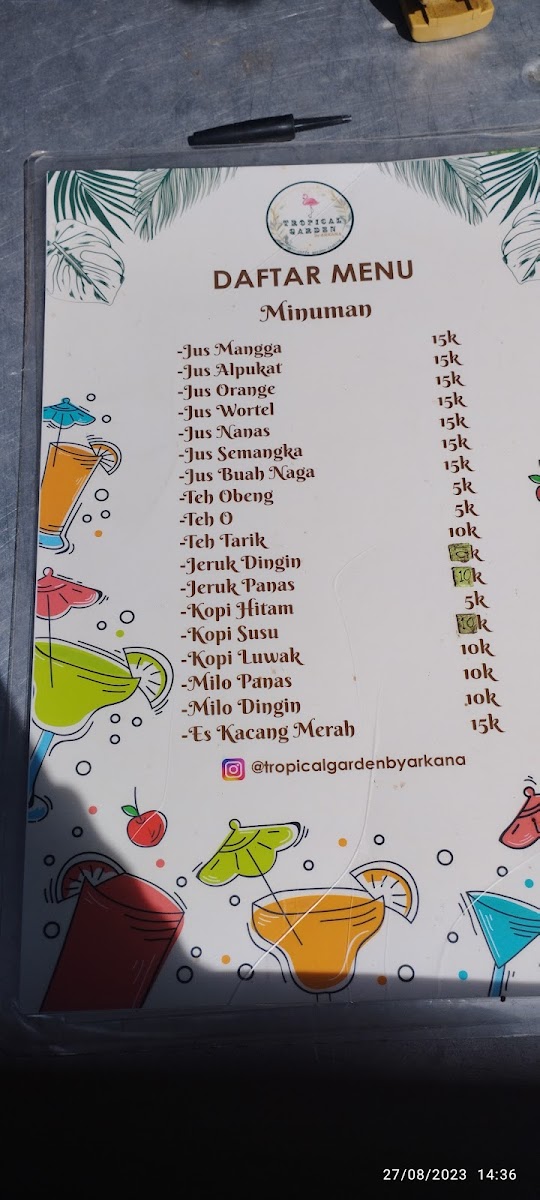 TROPICAL
GARDEN
DAFTAR MENU
Minuman
-Jus Mangga 15k
-Jus Alpukat 15k
-Jus Orange 15k
-Jus Wortel 15k
-Jus Nanas 15k
-Jus Semangka 15k
-Jus Buah Naga 15k
-Teh Obeng 5k
-Teh O 5k
-Teh Tarik 10k
-Jeruk Dingin
-Jeruk Panas 10k
-Kopi Hitam 5k
-Kopi Susu 10k
-Kopi Luwak 10k
-Milo Panas 10k
-Milo Dingin 10k
-Es Kacang Merah 15k
@tropicalgardenbyarkana
27/08/2023 14:36